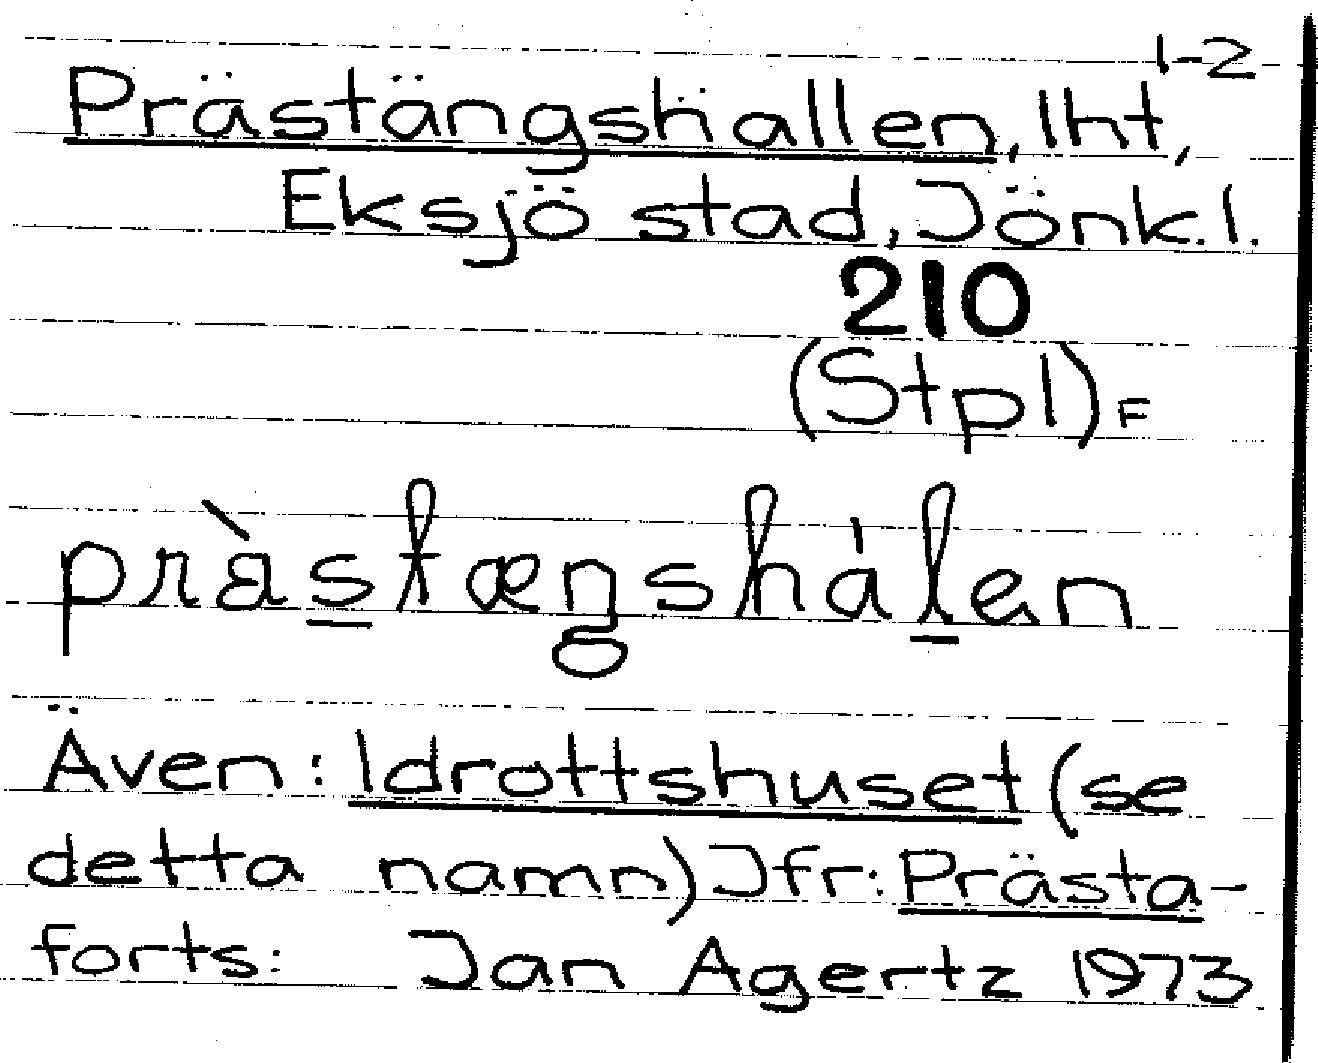 1-2
Prästängshallen, lht,
Eksjö stad, Jönk.l.
210
(Stpl) F
Även: Idrottshuset (se
detta namn) Jfr: Prästa-
forts: Jan Agertz 1973